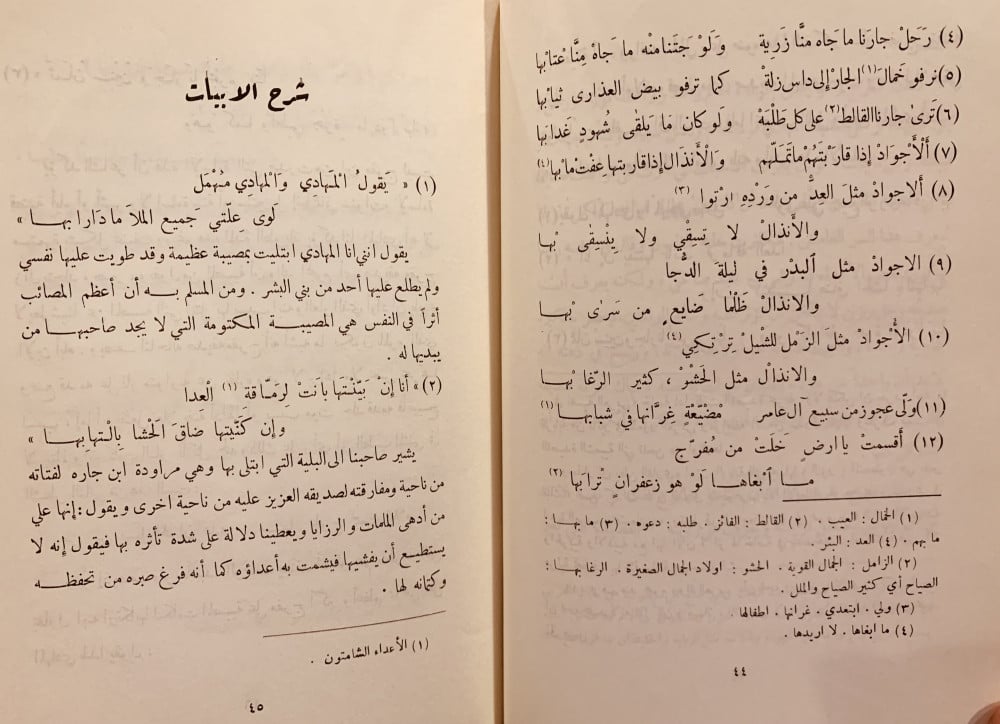 (٤) رَحَلْ جارنا ما جاه منَّا زَرية    وَلَوْ جَتنا منه ما جَاهْ مِنَّا عتابها
(٥) نرفو خَمالَ (١) الجار إلى داس زلةْ    كما ترفو بيض العذارى ثيابها
(٦) تَرىٰ جارنا القالط (٢) على كل طَلْبَهْ    ولو كان ما يَلقى شُهودٍ غَدابها
(٧) أَلْأجوادْ إذا قارَبْتَهُمْ ما تَمَلّهم    وَالْأَنْذالْ إذا قاربتها عِفْت ما بها (٤)
(٨) ألاجوادْ مثلَ العِدُّ من وَرَدِهِ ارْتوا (٣)
والأَنذالْ لا تِسقي ولا يِنْسِقىٰ بها
(٩) الاجوادْ مثل اَلبدْر في ليلة الدُّجا
والانذالْ ظَلْمَا ضَايعٍ من سَرىٰ بها
(١٠) الأُجوادْ مثلَ الزَمْل للشيلْ تِرْتِكي (٤)
والانذالْ مثل الحَشْوْ ، كثير الرّغا بها
(١١) وَلّى عجوز من سبيع آل عامر    مْضَيّعةٍ غِرَّانها في شبابها (١)
(١٢) أَقسمتْ يا ارضٍ خَلَتْ من مُفرّج
ما اَبْغاها لَوْ هو زعفرانٍ تْرابَها (٢)
(١) الخمال : العيب . (٢) القالط : الفائز . طلبه : دعوه . (٣) ما بها :
ما بهم . (٤) العد : البئر .
(٢) الزامل : الجمال القوية . الحشو : اولاد الجمال الصغيرة . الرغا بها :
الصياح أي كثير الصياح والملل .
(٣) ولي . ابتعدي . غرانها . اطفالها .
(٤) ما ابغاها . لا اريدها .
٤٤
شرح الابيات
(١) « يَقولُ المَهادي وَالمهادي مُهْمَل
لَوى عِلّتي جَميع الملاَ ما دَارا بها »
يقول انني انا المهادي ابتليت بمصيبة عظيمة وقد طويت عليها نفسي
ولم يطلع عليها أحد من بني البشر . ومن المسلم به أن أعظم المصائب
أثراً في النفس هي المصيبة المكتومة التي لا يجد صاحبها من
يبديها له .
(٢) « أنا إنْ بَيّنْتَها بانَتْ لِرَمّاقة (١) الْعِدا
وإن كَتّيتها ضاقَ الْحَشا بِالْتِهابها »
يشير صاحبنا الى البلية التي ابتلى بها وهي مراودة ابن جاره لفتاته
من ناحية ومفارقته لصديقه العزيز عليه من ناحية اخرى ويقول : إنها علي
من أدهى الملمات والرزايا ويعطينا دلالة على شدة تأثره بها فيقول إنه لا
يستطيع أن يفشيها فيشمت به أعداؤه كما أنه فرغ صبره من تحفظه
وكتمانه لها .
(١) الأعداء الشامتون .
٤٥